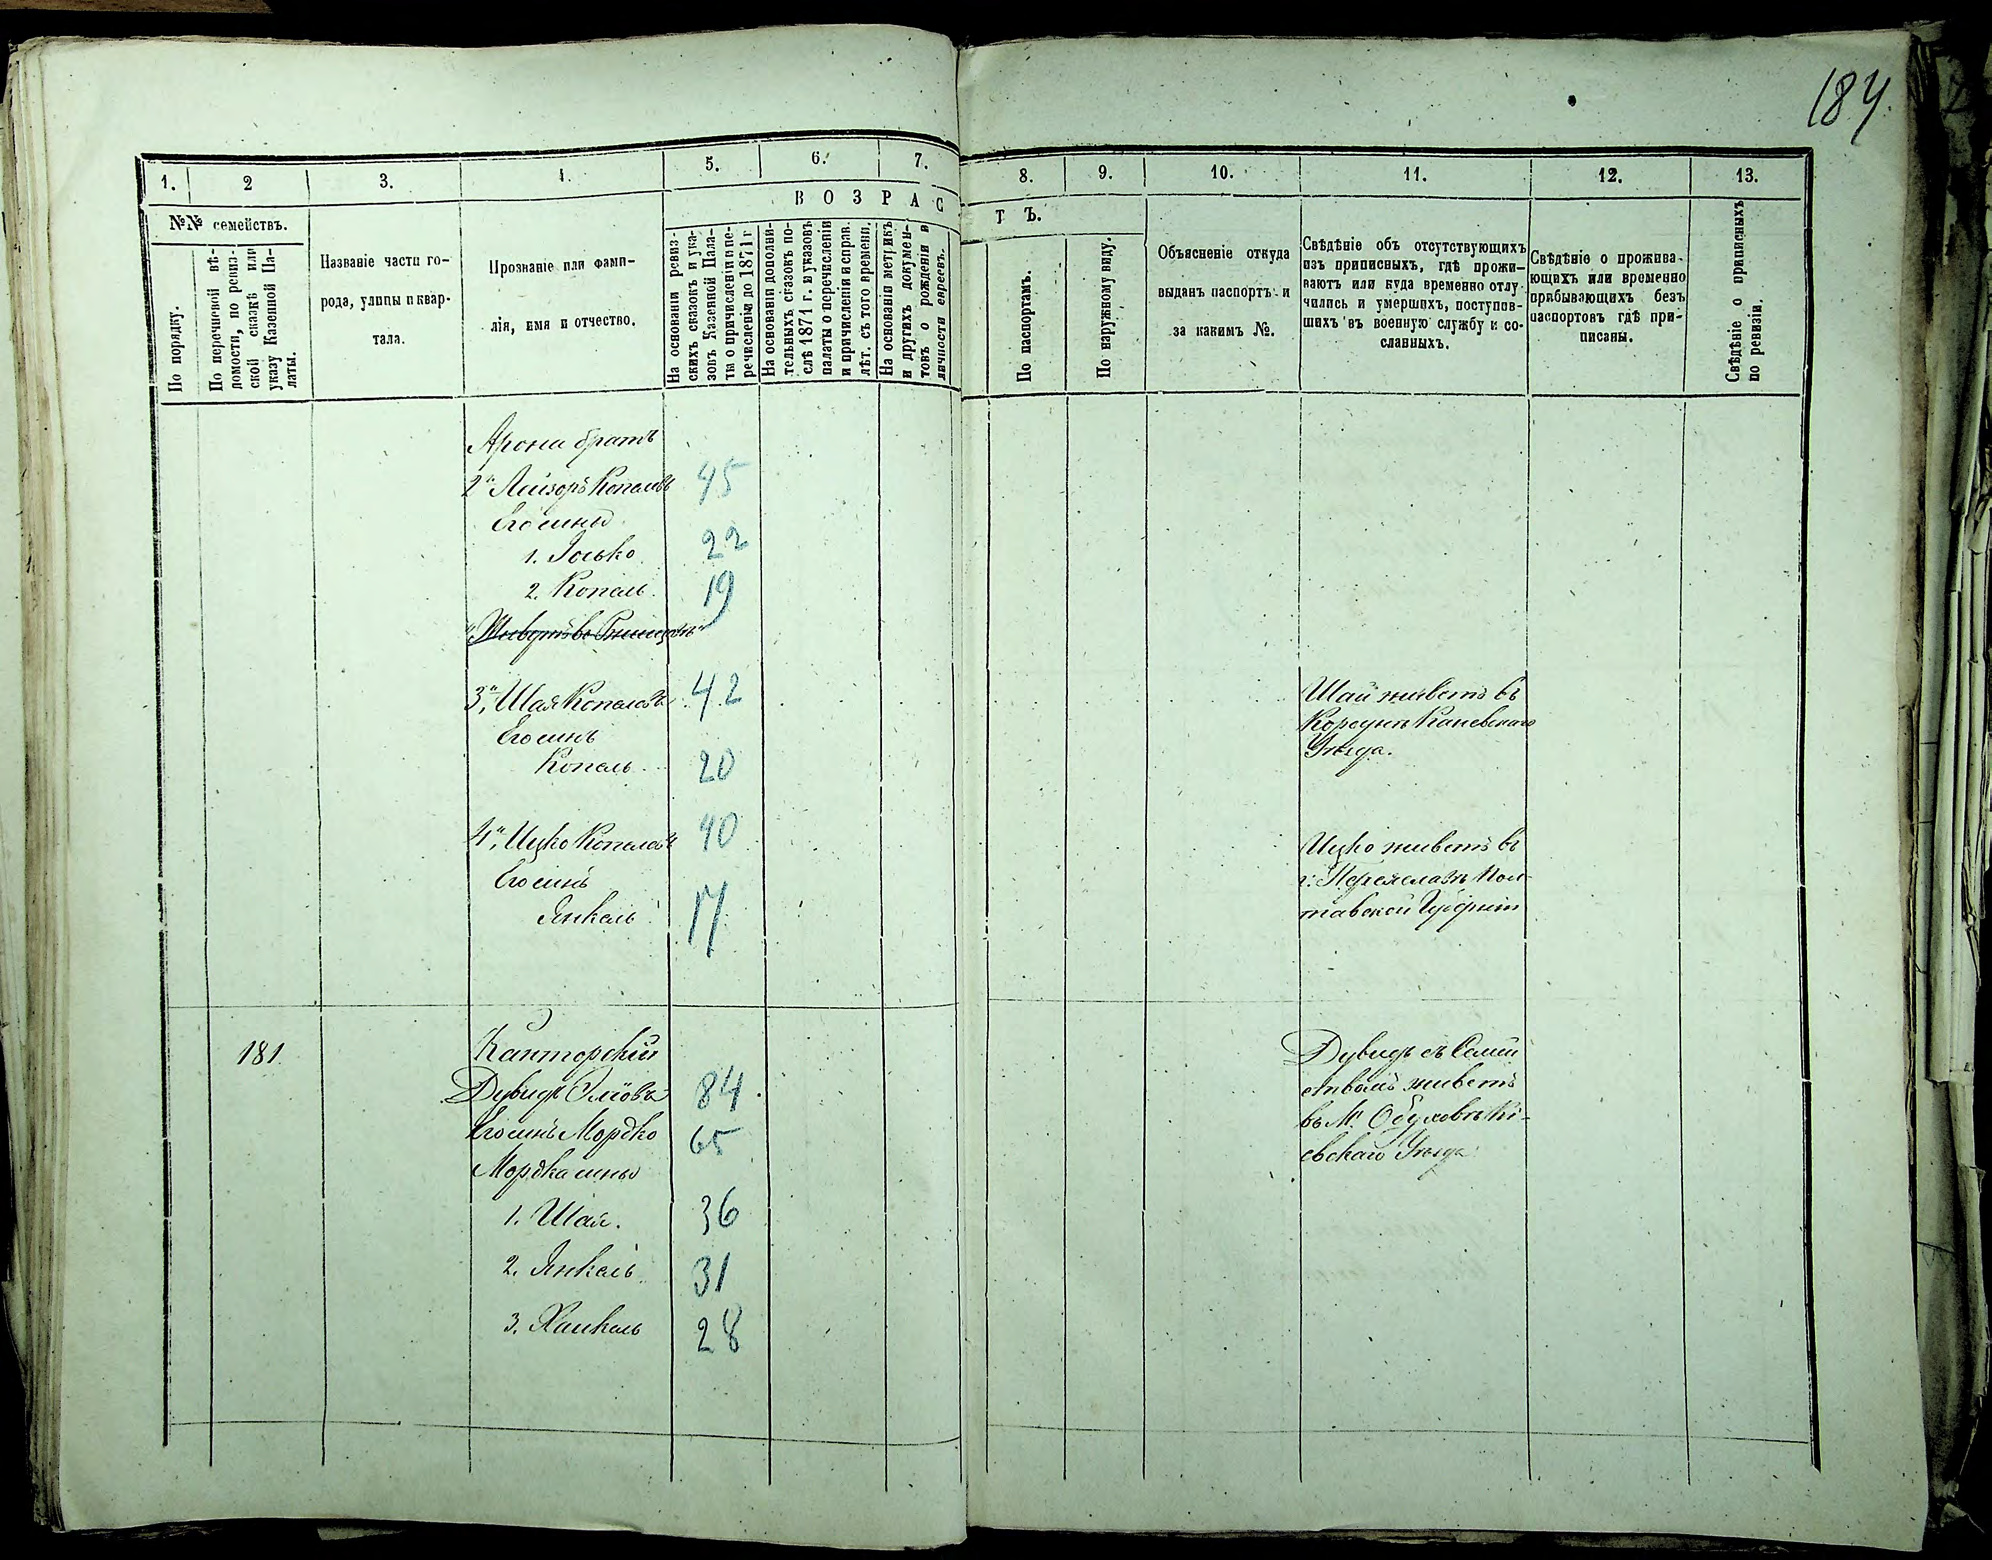 184.
1.
2
3.
4.
5.
6.
7.
8.
9.
10.
11.
12.
13.
ВОЗРАСТЪ.
№№ семействъ.
По порядку.
По перечневой вѣ-
домости, по ревиз-
ской сказкѣ или
указу Казенной Па-
латы.
Названіе части го-
рода, улицы и квар-
тала.
Прозваніе или фами-
лія, имя и отчество.
На основаніи ревиз-
скихъ сказокъ и ука-
зовъ Казенной Пала-
ты о причисленіи и пе-
речисленіи до 1871 г
На основаніи дополни-
тельныхъ сказокъ по-
слѣ 1871 г. и указовъ
палаты о перечисленіи
и причисленіи и исправ.
лѣт. съ того времени.
На основаніи метрикъ
и другихъ докумен-
товъ о рожденіи и
личности евреевъ.
По паспортамъ.
По наружному виду.
Объясненіе откуда
выданъ паспортъ и
за какимъ №.
Свѣдѣніе объ отсутствующихъ
изъ приписныхъ, гдѣ прожи-
ваютъ или куда временно отлу-
чились и умершихъ, поступив-
шихъ въ военную службу и со-
сланныхъ.
Свѣдѣніе о прожива-
ющихъ или временно
прибывающихъ безъ
паспортовъ гдѣ при-
писаны.
Свѣдѣніе о приписныхъ
по ревизіи.
Арона братъ
2й Лейзоръ Копеловъ 45
Его сыны
1. Іосько 22
2. Копель. 19
3й, Шая Копеловъ 42
Шая живетъ въ
Корсунѣ Каневскаго
Уѣзда.
Его сынъ
Копель 20
4й, Ицко Копеловъ 40
Ицко живетъ въ
г. Переяславѣ Пол-
тавской Губерніи
Его сынъ
Янкель 17
181.
Канторскій
Дувидъ Элiовъ 84
Дувидъ съ Семей
ствомъ живетъ
въ М. Обуховѣ Кі-
евскаго Уѣзда
Его сынъ Мордко 65
Мордка сыны
1. Шая. 36
2. Янкель 31
3. Хаикель 28